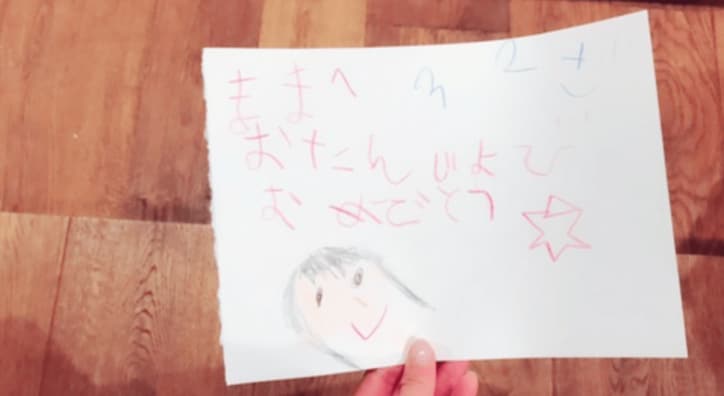 ままへ 32さ
おたんじよび
おめでとう☆